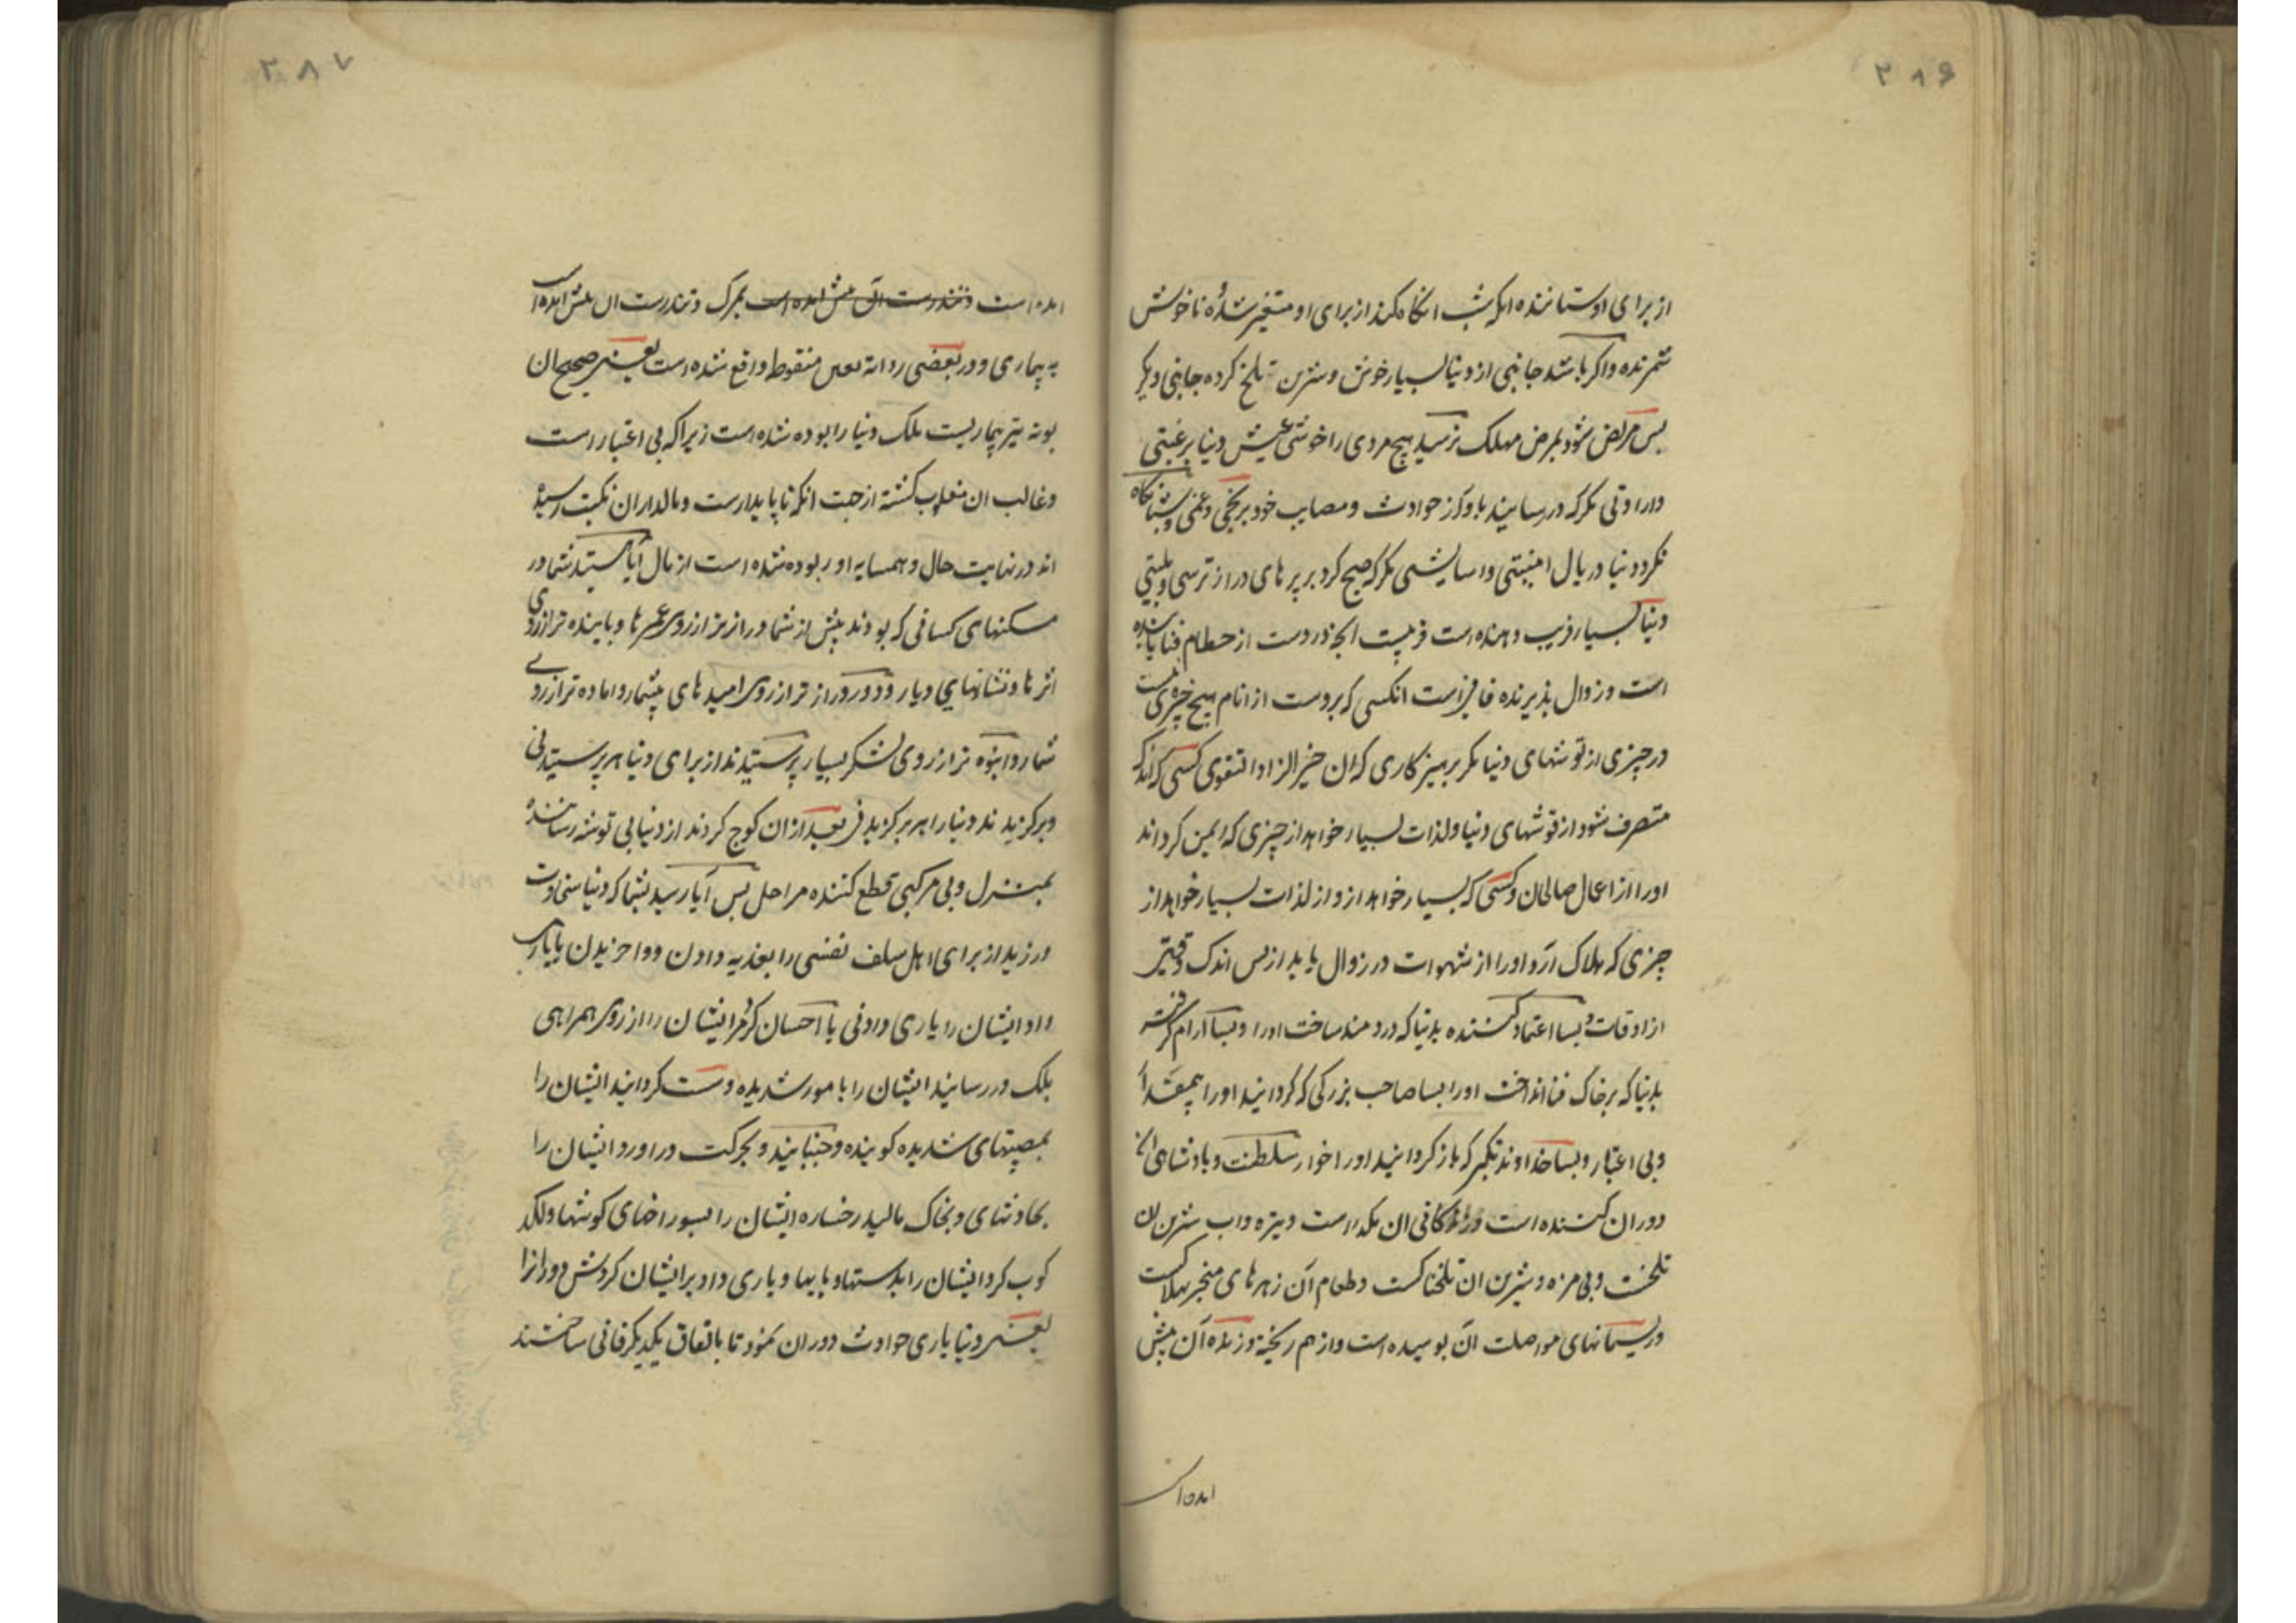 ۲۸۶
از برای او ستاننده اکر شب انکاه کند از برای او متغیر شده ناخوش
شمرنده واکر باشد جانبی از دنیا بسیار خوش و شیرین تلخ کرده جانبی دیکر
پس مریض شود بمرض مهلک نرسید هیچ مردی را خوشی عیش دنیا برغبتی
وارادتی مکر که در رسانید باو از حوادث و مصایب خود برنجی و غمی و شبانکاه
نکرد دنیا در بال امنیتی واسایشی مکر که صبح کرد بر پر های دراز ترسی و بلیتی
دنیا بسیار فریب دهنده است فریبست انچه دروست از حطام فنا یابنده
است و زوال پذیرنده فانیست انکسی که بروست از انام هیچ خیری نیست
در چیزی از توشهای دنیا مکر پرهیزکاری که ان خیر الزاد التقوی کسی که اندک
متصرف شود از توشهای دنیا ولذات بسیار خواهد از چیزی که ایمن کرداند
اورا از اعمال صالحان وکسی که بسیار خواهد ازو از لذات بسیار خواهد از
چیزی که هلاک ارد اورا از شهوات در زوال یابد از پس اندک وقتی
از اوقات و بسا اعتماد کننده بدنیا که دردمند ساخت اورا وبسا آرام کرفته
بدنیا که بر خاک فنا انداخت اورا بسا صاحب بزرکی که کردانید اورا بیمقدار
وبی اعتبار وبسا خداوند تکبر که باز کردانید اورا خوار سلطنت وپادشاهی ان
دوران کننده است وزندکانی ان مکدر است وتیره واب شیرین ان
تلخست وبی مزه وشیرین ان تلخناکست وطعام آن زهرهای منجر بهلاکست
وریسمانهای مواصلت آن پوسیده است واز هم ریخته وزنده آن پیش
امده است
۲۸۷
امده است وتندرست ان پیش امده است بمرک وتندرست ان پیش امده است
به بیماری ودر بعضی روایة بعین منقوط واقع شده است یعنی صحیح ان
بوته تیر بیماریست ملک دنیا ربوده شده است زیرا که بی اعتبار است
وغالب ان مغلوب کشته از جهت انکه ناپایدارست ومالداران نکبت رسیده
اند در نهایت حال وهمسایه او ربوده شده است از مال آیا نیستید شما در
مسکنهای کسانی که بودند پیش از شما دراز تر از روی عمرها وپاینده تر از روی
اثرها ونشانهای دیار ودور ودراز تر از روی امیدهای بیشمار واماده تر از روی
شمار وانبوه تر از روی لشکر بسیار پرستیدند از برای دنیا هر پرستیدنی
وبرکزیدند دنیا را هر برکزیدنی بعد ازان کوچ کردند از دنیا بی توشه رساننده
بمنزل وبی مرکبی قطع کننده مراحل پس آیا رسید بشما که دنیا سخاوت
ورزید از برای اهل سلف نفسی را بفدیه دادن و واخریدن یا یاری
داد ایشان را یاری دادنی یا احسان کرد مر ایشان را از روی همراهی
بلکه در رسانید ایشان را بامور شدیده وسست کردانید ایشان را
بمصیبتهای شدیده کوبنده وجنبانید وبحرکت در اورد ایشان را
بحادثهای وبخاک مالید رخساره ایشان را بسوراخهای کوشها ولکد
کوب کرد ایشان را بدستها وپایها ویاری داد بر ایشان کردش دورانرا
یعنی دنیا یاری حوادث دوران نمود تا باتفاق یکدیکر فانی ساختند